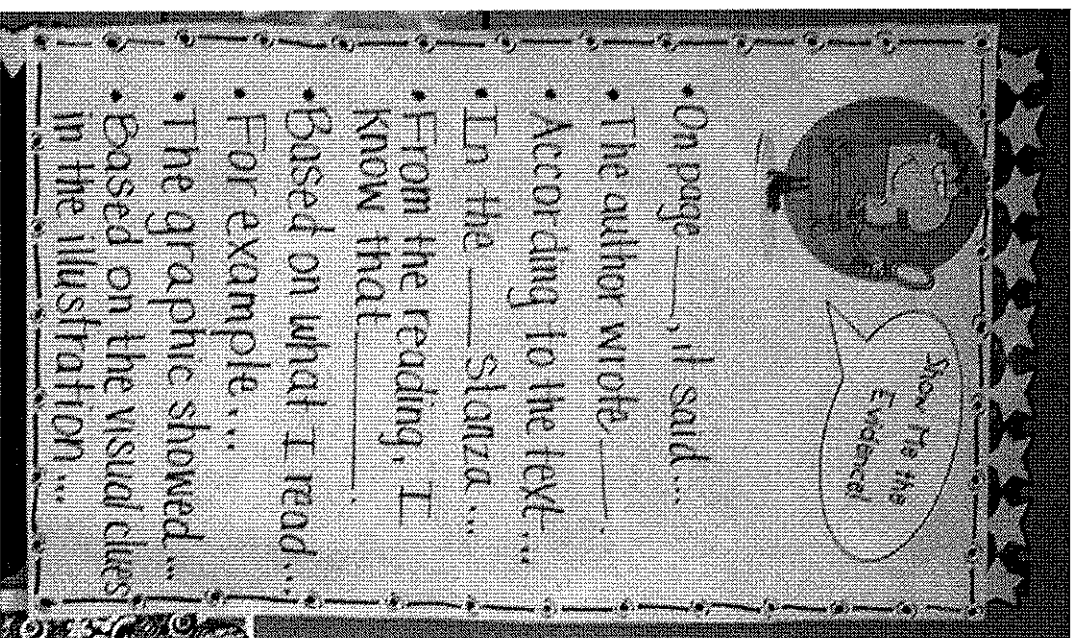 Show Me the
Evidence!
• On page ____, it said...
• The author wrote ____.
• According to the text...
• In the ____ stanza...
• From the reading, I
know that ____.
• Based on what I read...
• For example...
• The graphic showed...
• Based on the visual clues
in the illustration...